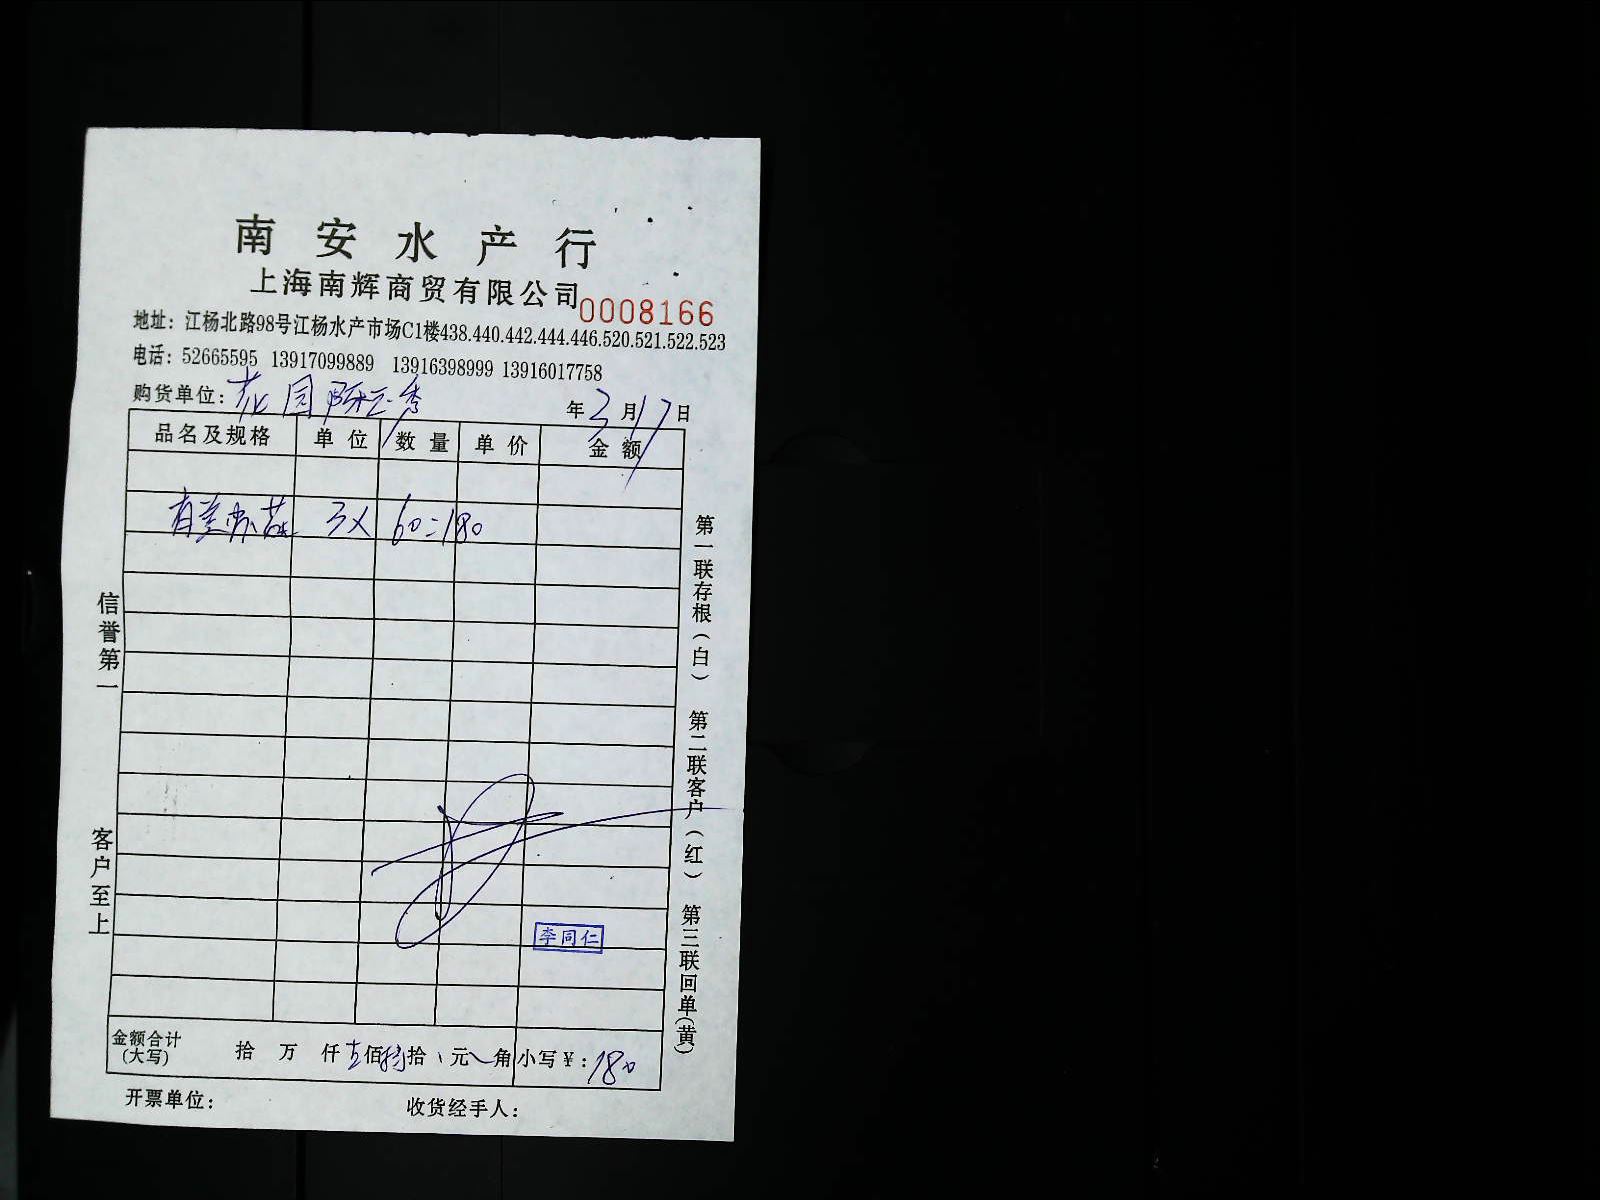 南安水产行
上海南辉商贸有限公司
0008166
地址：江杨北路98号江杨水产市场C1楼438.440.442.444.446.520.521.522.523
电话：52665595 13917099889 13916398999 13916017758
购货单位：花园陈云秀
年3月17日
品名及规格 单位 数量 单价 金额
3× 60=180
信誉第一
客户至上
第一联存根（白） 第二联客户（红） 第三联回单（黄）
李同仁
金额合计（大写） 拾 万 仟壹佰捌拾 元 角 小写¥：180
开票单位： 收货经手人：